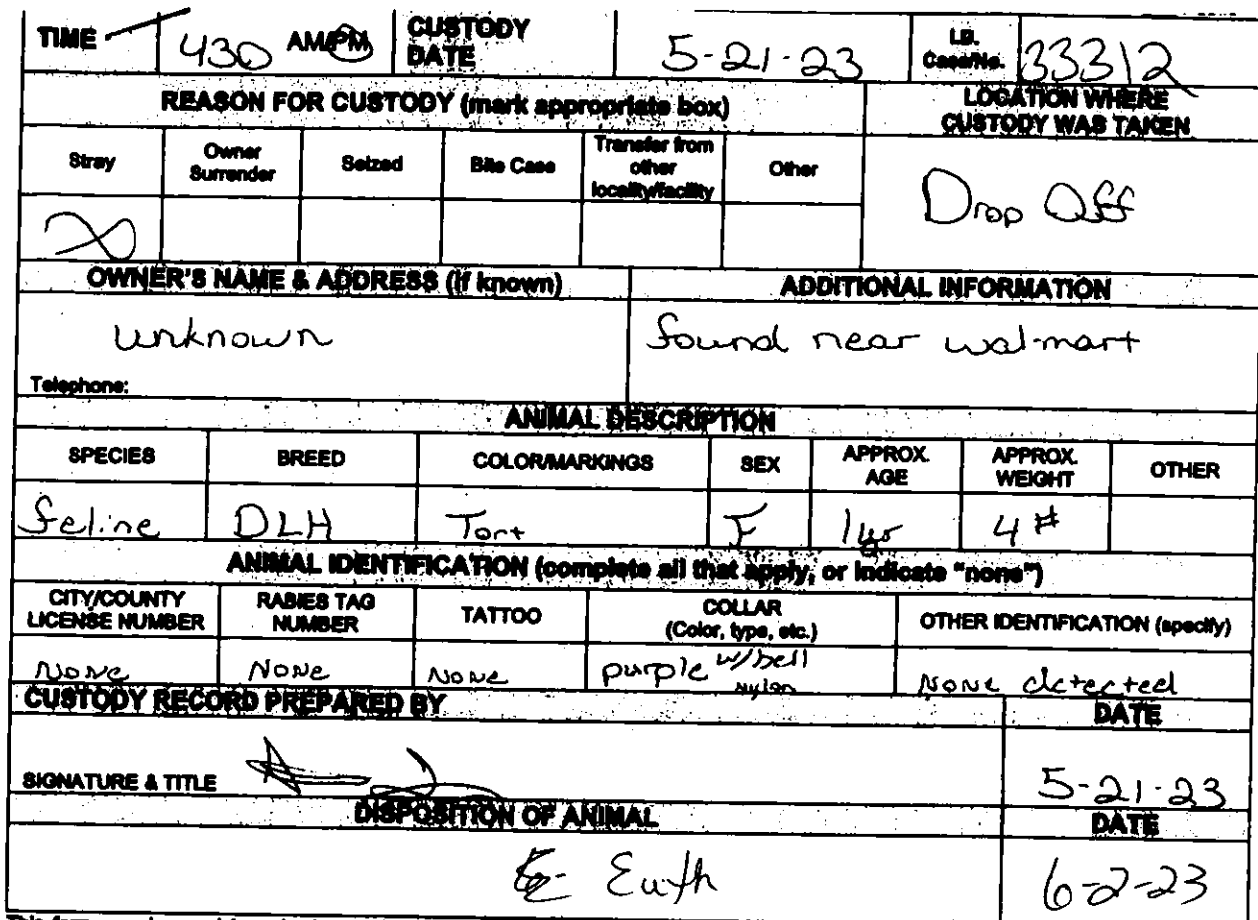 TIME 430 AM/PM CUSTODY DATE 5-21-23 I.D. Case/No. 33312
REASON FOR CUSTODY (mark appropriate box) LOCATION WHERE CUSTODY WAS TAKEN
Stray Owner Surrender Seized Bite Case Transfer from other locality/facility Other
Drop Off
OWNER'S NAME & ADDRESS (if known) ADDITIONAL INFORMATION
unknown found near wal-mart
Telephone:
ANIMAL DESCRIPTION
SPECIES BREED COLOR/MARKINGS SEX APPROX. AGE APPROX. WEIGHT OTHER
feline DLH Tort F 1yr 4#
ANIMAL IDENTIFICATION (complete all that apply, or indicate "none")
CITY/COUNTY LICENSE NUMBER RABIES TAG NUMBER TATTOO COLLAR (Color, type, etc.) OTHER IDENTIFICATION (specify)
None None None purple w/bell nylon None detected
CUSTODY RECORD PREPARED BY DATE
SIGNATURE & TITLE 5-21-23
DISPOSITION OF ANIMAL DATE
Euth 6-2-23